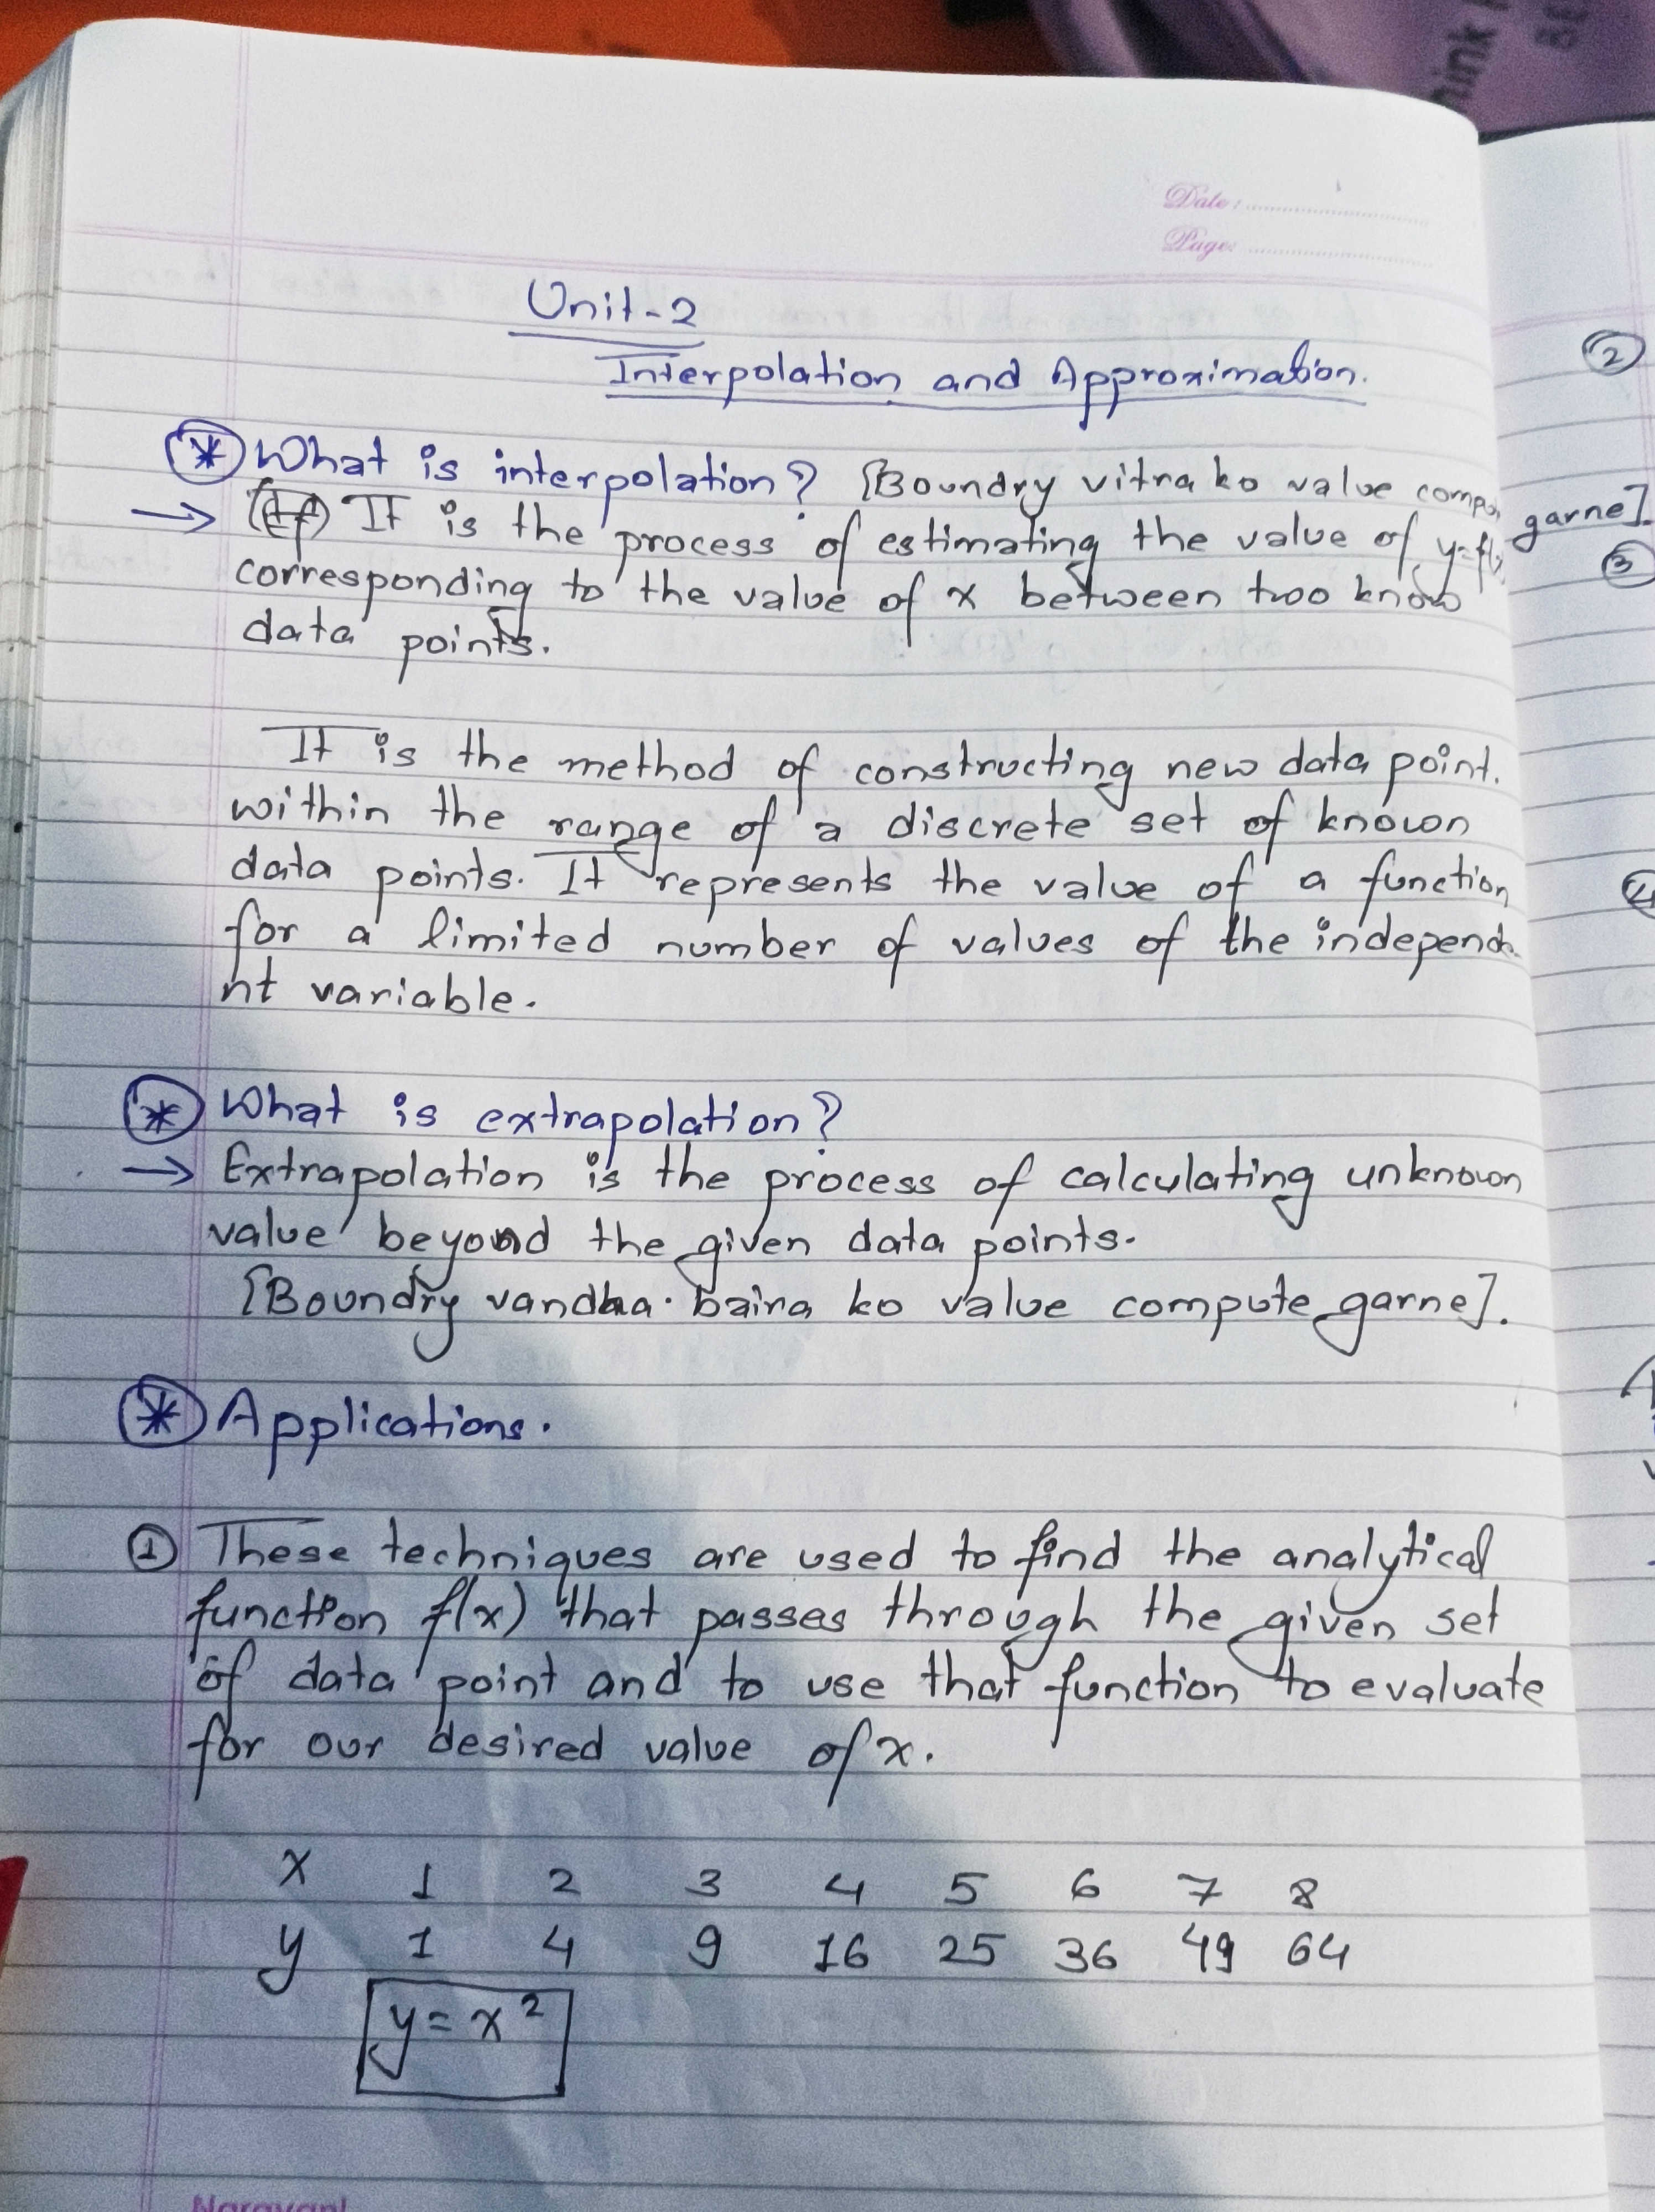 hink
Date:
Page:
Unit-2
Interpolation and Approximation.
* What is interpolation? [Boundry vitra ko value garne].
→ It is the process of estimating the value of y=f(
corresponding to the value of x between two know
data points.
It is the method of constructing new data point.
within the range of a discrete set of known
data points. It represents the value of a function
for a limited number of values of the independ
nt variable.
* What is extrapolation?
→ Extrapolation is the process of calculating unknown
value beyond the given data points.
[Boundry vandha baira ko value compute garne].
* Applications.
① These techniques are used to find the analytical
function f(x) that passes through the given set
of data point and to use that function to evaluate
for our desired value of x.
x 1 2 3 4 5 6 7 8
y 1 4 9 16 25 36 49 64
y = x²
②
③